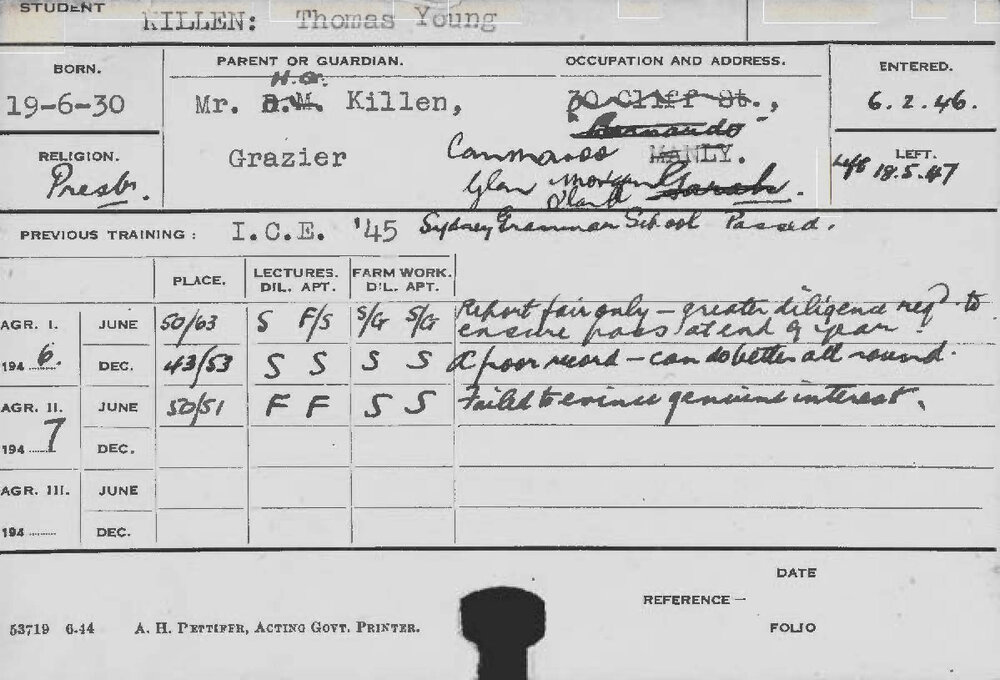 STUDENT
KILLEN: Thomas Young
BORN. PARENT OR GUARDIAN. OCCUPATION AND ADDRESS. ENTERED.
H.G.
19-6-30 Mr. Killen, 30 Cliff St., 6.2.46.
RELIGION. Grazier MANLY. LEFT.
Presb. Glen 18.5.47
PREVIOUS TRAINING: I.C.E. '45 Sydney Grammar School Passed.
PLACE. LECTURES. FARM WORK.
DIL. APT. DIL. APT.
AGR. I. JUNE 50/63 S F/S S/G S/G Report fair only – greater diligence reqd. to
ensure pass at end of year
194 6. DEC. 43/53 S S S S A poor record – can do better all round.
AGR. II. JUNE 50/51 F F S S Failed to evince genuine interest.
194 7 DEC.
AGR. III. JUNE
194 DEC.
DATE
REFERENCE –
53719 6.44 A. H. PETTIFER, ACTING GOVT. PRINTER. FOLIO